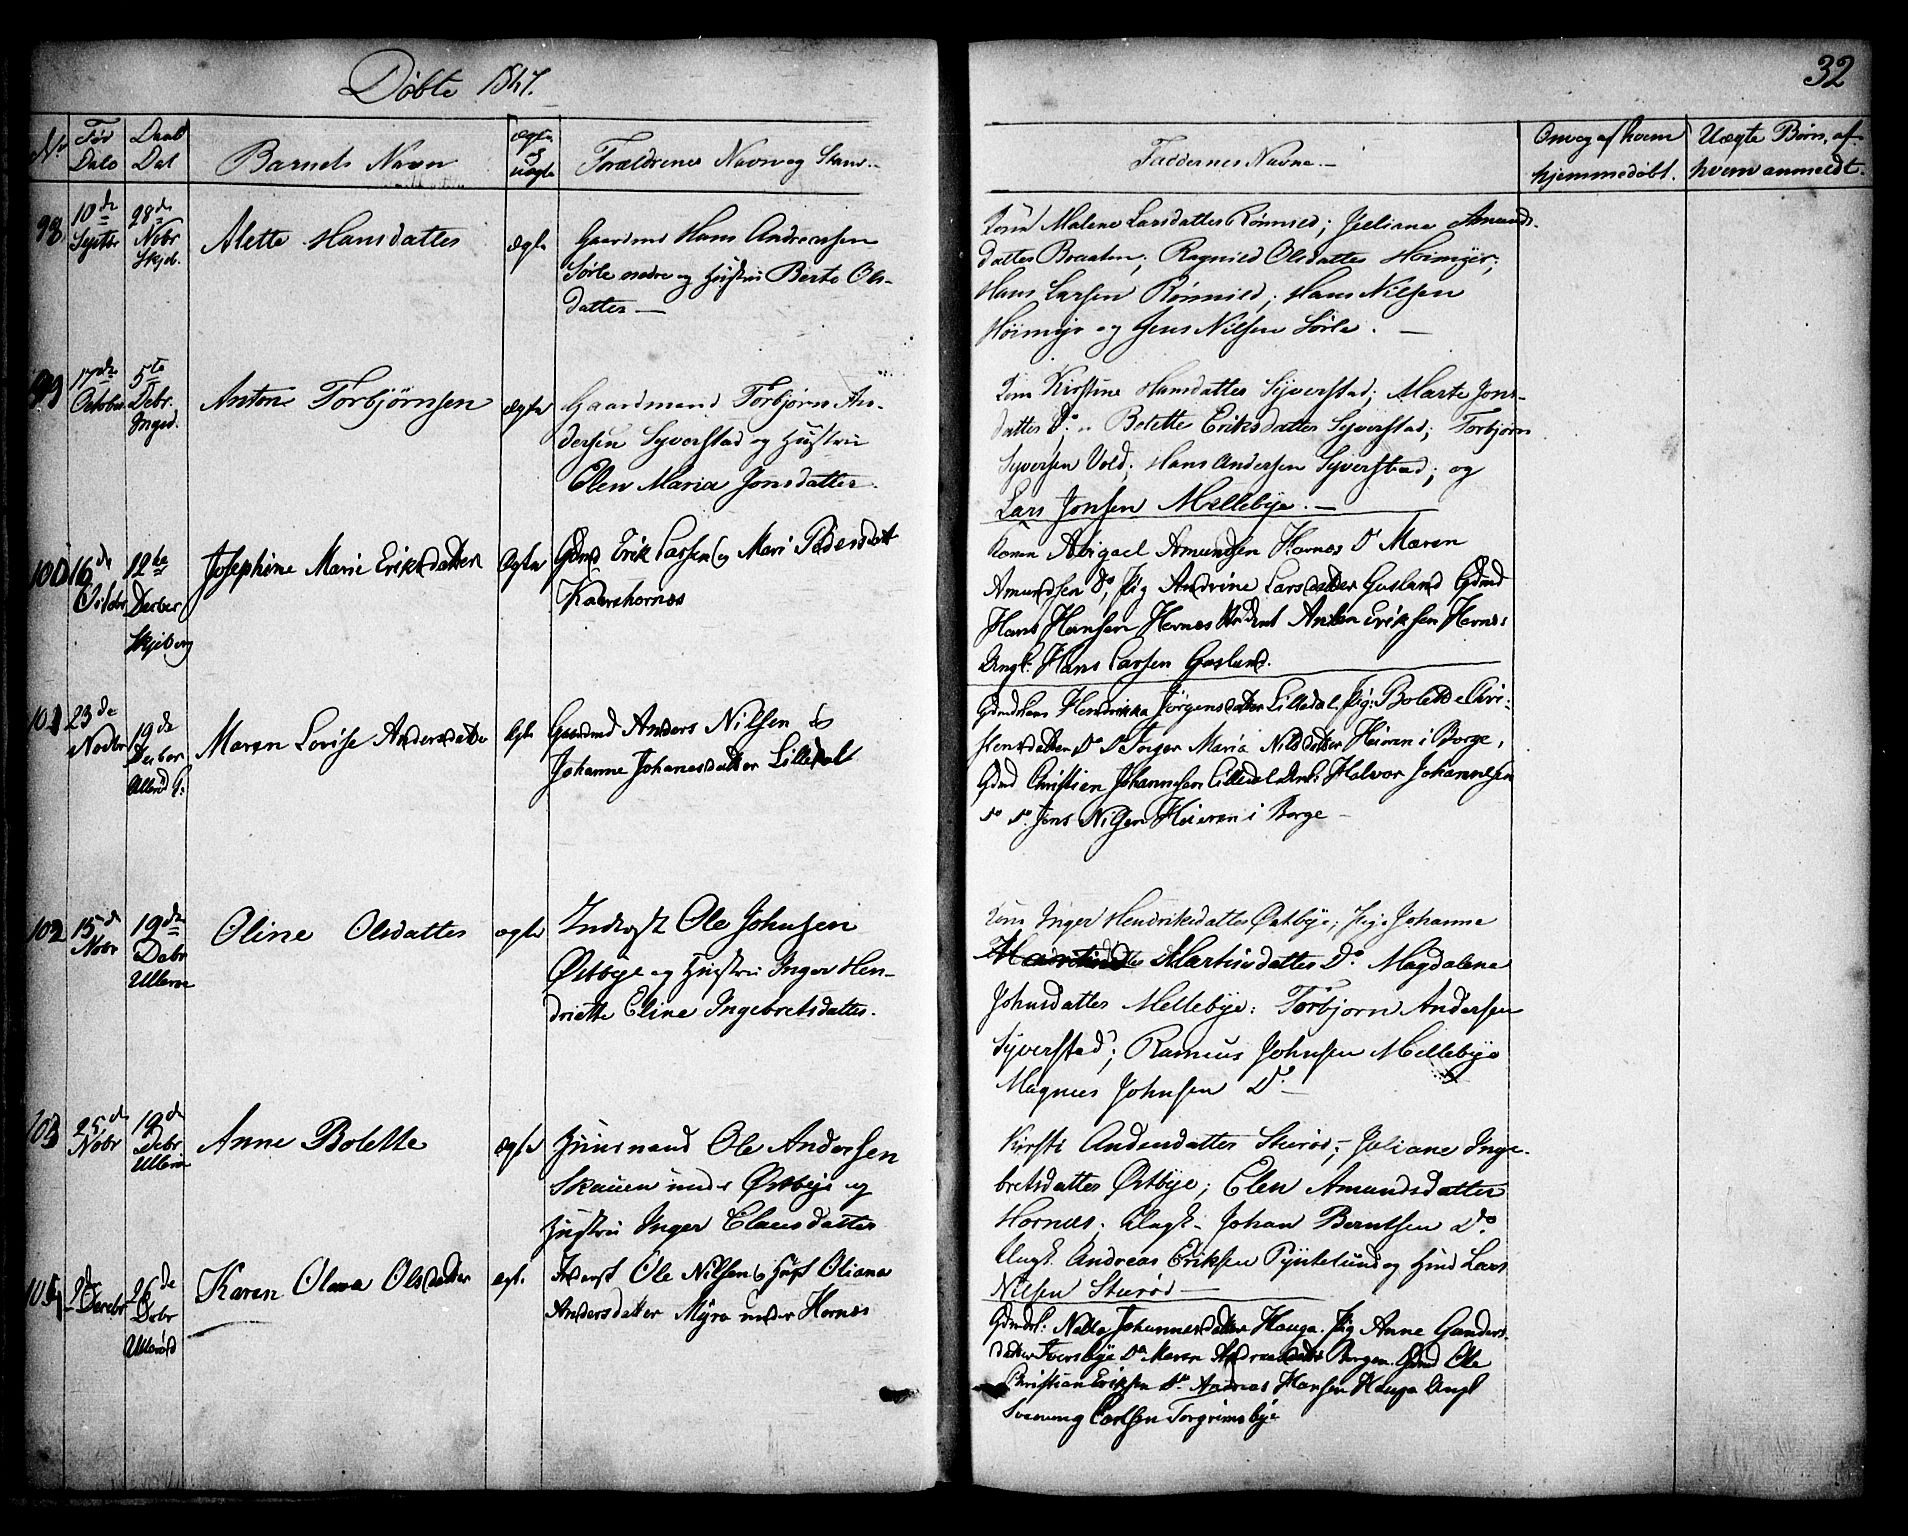 Døbte 1847.
32
No.
Fød
Dato
Daab
Dat
Barnets Navn
ægte
og
uægte
Forældrenes Navn og Stand.
Faddernes Navne.
Om og af hvem
hjemmedøbt.
Uægte Børn, af
hvem anmeldt.
98
10de
Septbr
28de
Nobr
Skjeb.
Alette Hansdatter
ægte
Gaardmd Hans Andersen
Sørle nedre og Hustru Berte Ols-
datter —
Kone Malene Larsdatter Rønnild; Juliane Amunds-
datter Braaten; Ragnild Olsdatter Høimyr;
Hans Larsen Rønnild; Hans Nilsen
Høimyr og Jens Nilsen Sørle. —
99
17de
October
5te
Debr.
Inged.
Anton Torbjørnsen
ægte
Gaardmand Torbjørn An-
dersen Syverstad og Hustru
Elen Maria Jonsdatter.
Kone Kirstine Hansdatter Syverstad; Marte Jons-
datter Do. Bolette Eriksdatter Syverstad; Torbjørn
Syversen Vold; Hans Andersen Syverstad; og
Lars Jonsen Mellebye. —
100
16de
Octobr
12te
Decbr
Skjeberg
Josephine Marie Eriksdatter
Ægte
Gdmd Erik Larsen og Mari Pedersdatt
Kaarehornæs
Konen Abigael Amundsen Hornes Do Maren
Amundsen Do, Pig Andrine Larsdatter Gusland Gdmd
Hans Hansen Hornes Anton Eriksen Hornes
Ungk: Hans Larsen Gusland.
101
23de
Novbr
19de
Decbr
Maren Lovise Andersdatter
Ægte
Gaardmd Anders Nilsen &
Johanne Johanesdatter Lilledal
Hendrikka Jörgensdatter Lilledal, Pig: Bolette Chri-
stensdatter Do Do Inger Maria Nilsdatter Heieren i Borge,
Gdmd Christien Johannesen Lilledal Halvor Johannesen
Do Do. Jens Nilsen Heieren i Borge —
102
15de
Nobr
19de
Debr
Ullerøe
Oline Olsdatter
ægte
Inderst Ole Johnsen
Østbye og Hustru Inger Hen-
driette Eline Ingebretsdatter.
Kone Inger Hendriksdatter Østbye; Pige Johanne
Martinsdatter Do. Magdalene
Johnsdatter Mellebye; Torbjorn Andersen
Syverstad; Rasmus Johnsen Mellebye
Magnus Johnsen Do.
103
25de
Nobr
19de
Debr
Ullerøe
Anne Bolette
ægte
Huusmand Ole Andersen
Skauen under Østbye og
Hustru Inger Clausdatter
Kirsti Andersdatter Skerød; Juliane Inge-
bretsdatter Østbye; Elen Amundsdatter
Hornæs; Ungk. Johan Berntsen Do.
Ungk. Andreas Eriksen Pyntelund og Hmd Lars
Nilsen Skerød —
104
2de
Decbr
26de
Debr
Ullerød
Karen Olava Olsdatter
ægt.
Inderst Ole Nilsen & Hust Oliana
Andersdatter Myra under Hornæs
Johannesdatter Hauga. Pig Anne Gunders-
datter Iversbye Do Maren Andreasdatt Borgen. Gdmd Ole
Christian Eriksen Do. Andreas Hansen Hauga Ungk
Svenung Carlsen Torgrimsbye